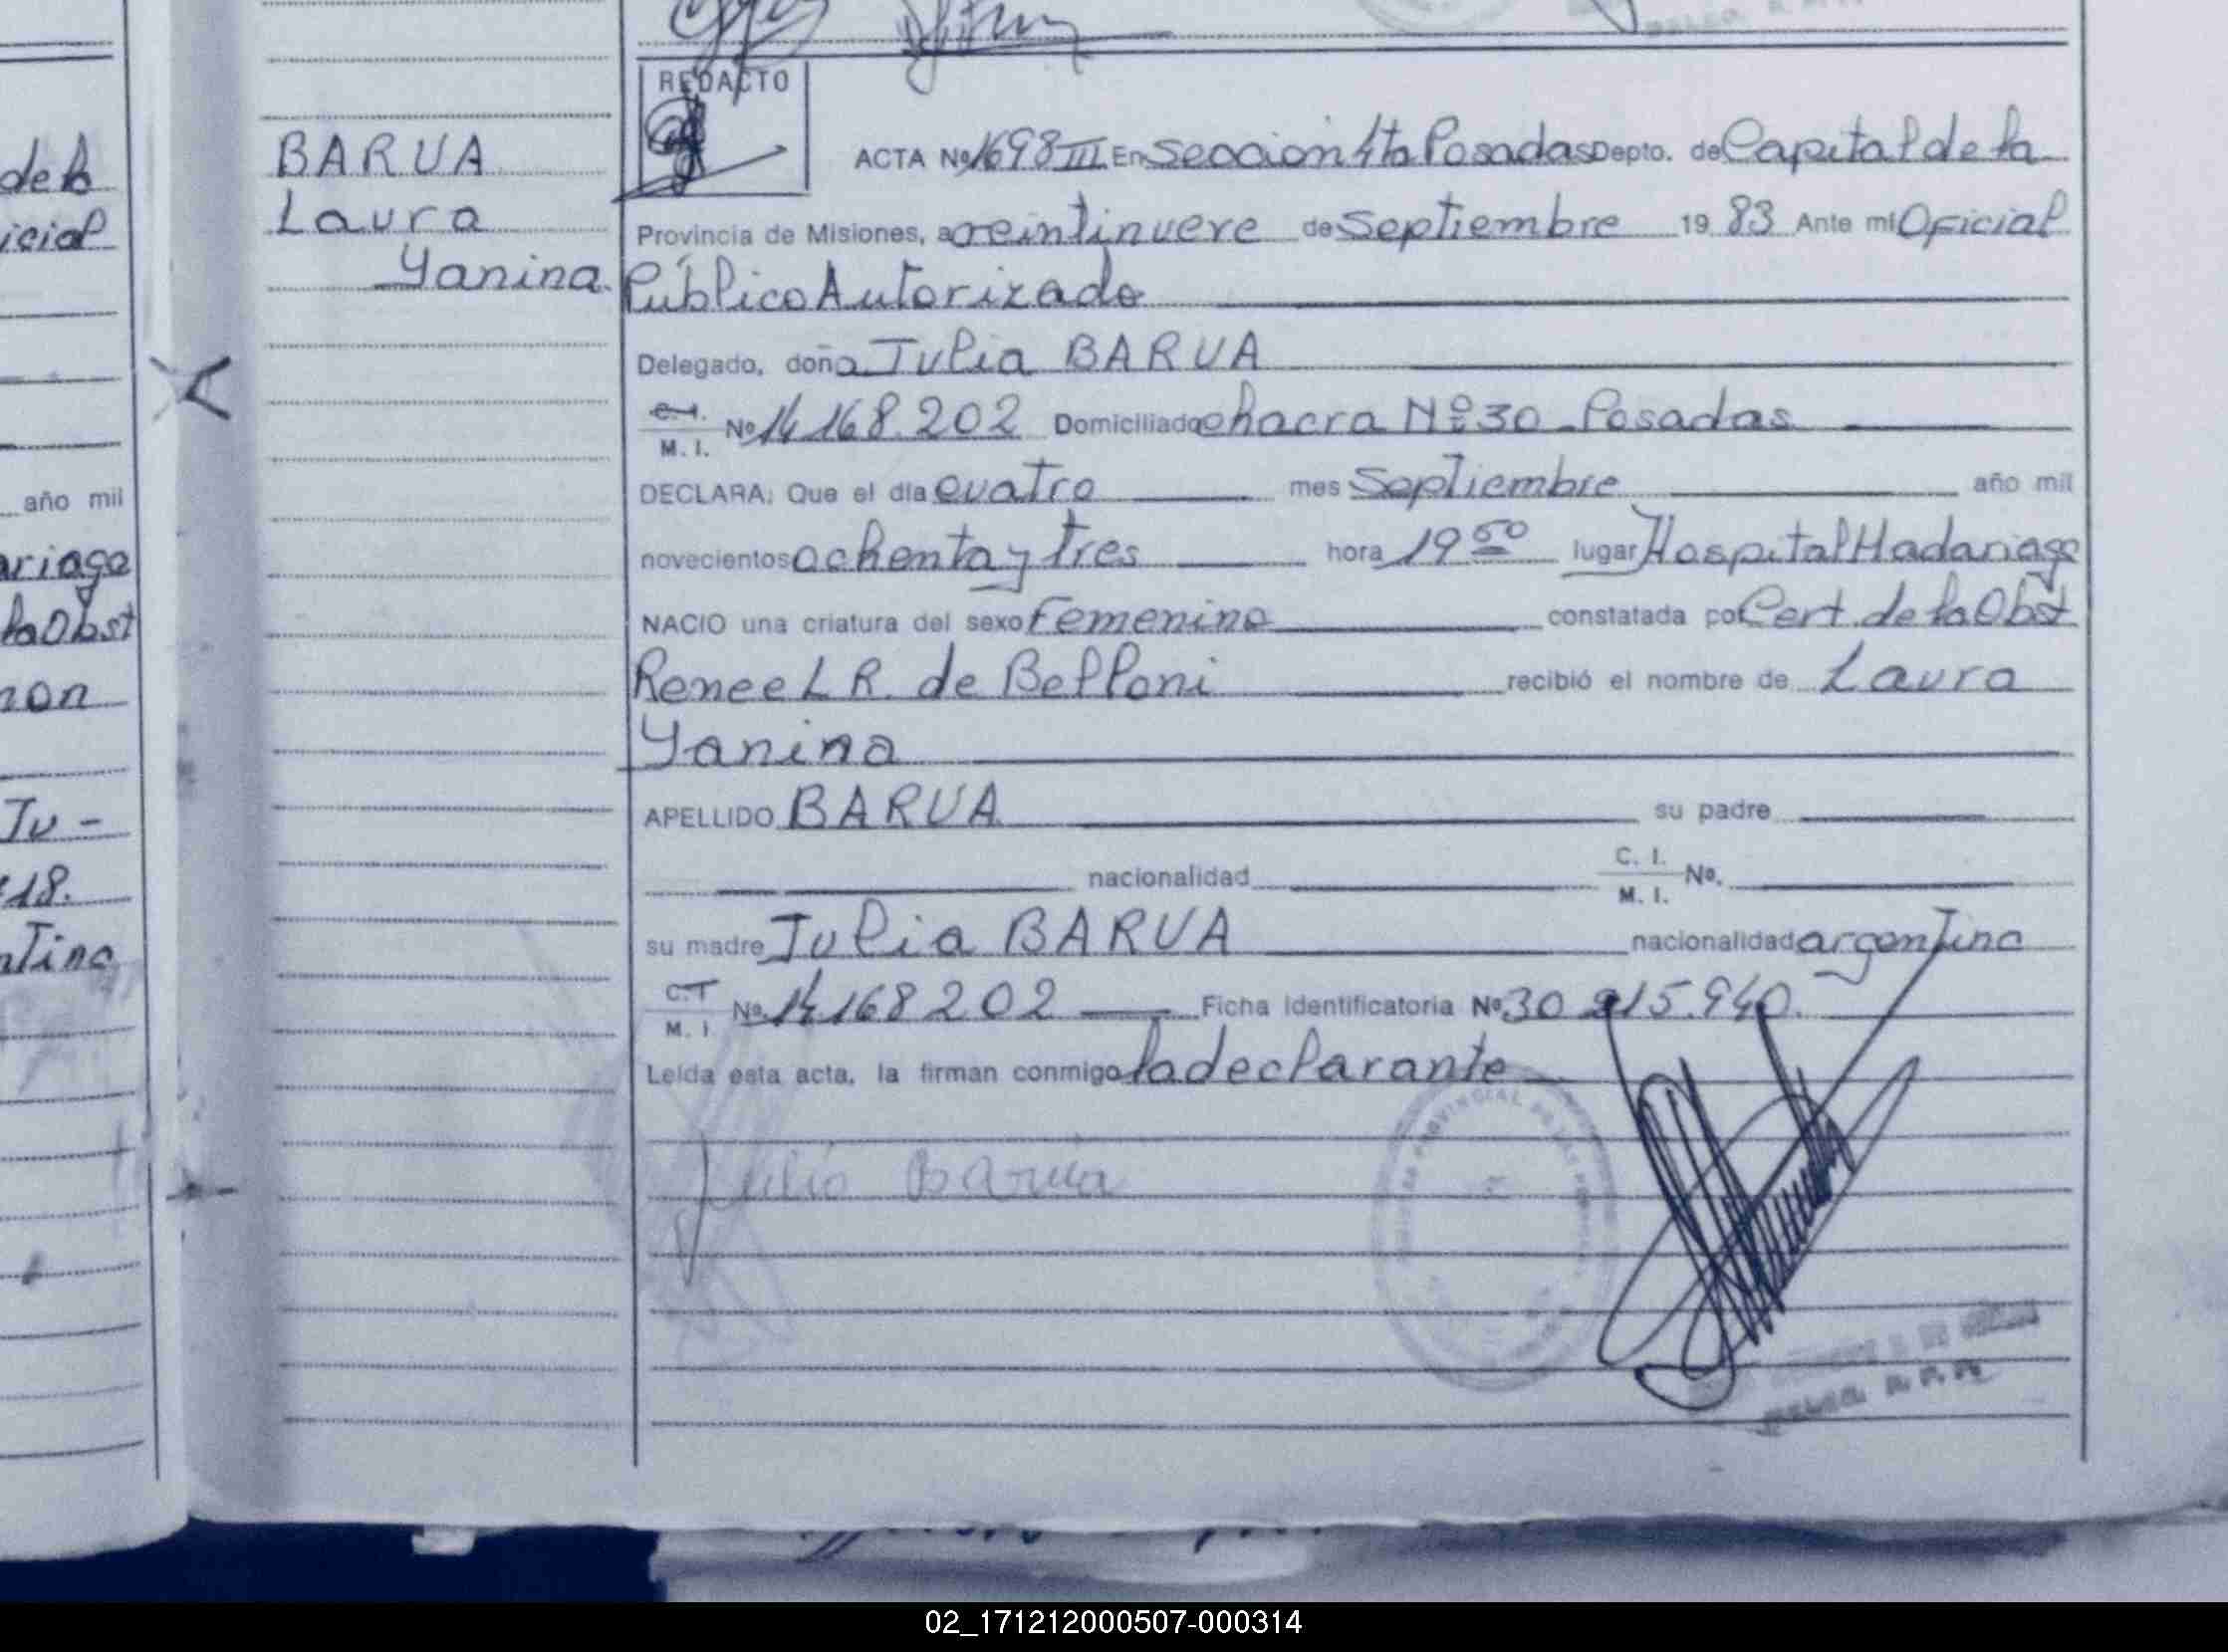 REDACTO
de la
BARUA
ACTA Nº 1698 III En Seccion 4ta Posadas Depto. de Capital de la
icial
Laura
Provincia de Misiones, a veintinueve de Septiembre 19 83 Ante mi Oficial
Yanina
Público Autorizado
Delegado, doña Julia BARUA
C.I.
M. I. Nº 14.168.202 Domiciliado chacra Nº 30 - Posadas
año mil
DECLARA: Que el día cuatro mes Septiembre año mil
ariaga
novecientos ochenta y tres hora 19 50 lugar Hospital Madariaga
la Obst
NACIO una criatura del sexo Femenino constatada por Cert. de la Obst
non
Renee L R. de Belloni recibió el nombre de Laura
Yanina
Ju -
APELLIDO BARUA su padre
18.
nacionalidad C. I.
M. I. Nº.
ntina
su madre Julia BARUA nacionalidad argentina
C.I
M. I Nº. 14168202 Ficha Identificatoria Nº 30 915.940.
Leída esta acta, la firman conmigo la declarante
Julia Barua
02_171212000507-000314